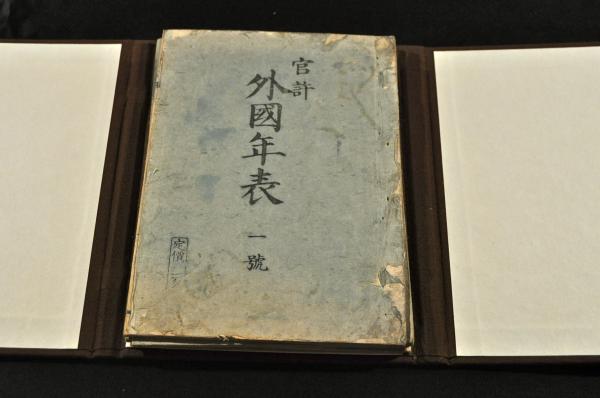 官許
外國年表
一號
定價